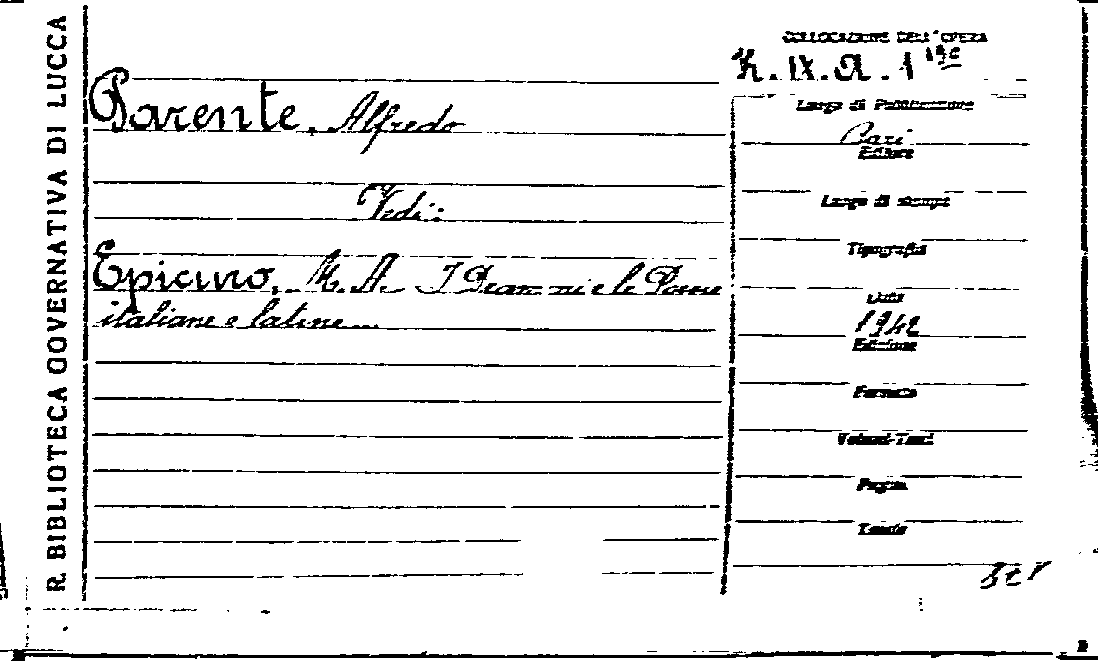 R. BIBLIOTECA GOVERNATIVA DI LUCCA
COLLOCAZIONE DELL'OPERA
Parente, Alfredo
Vedi:
Epicuro, M. A. I Drammi e le Poesie
italiane e latine...
Luogo di Pubblicazione
Bari
Editore
Luogo di stampa
Tipografia
Data
1942
Edizione
Formato
Volumi-Tomi
Pagine
Tavole